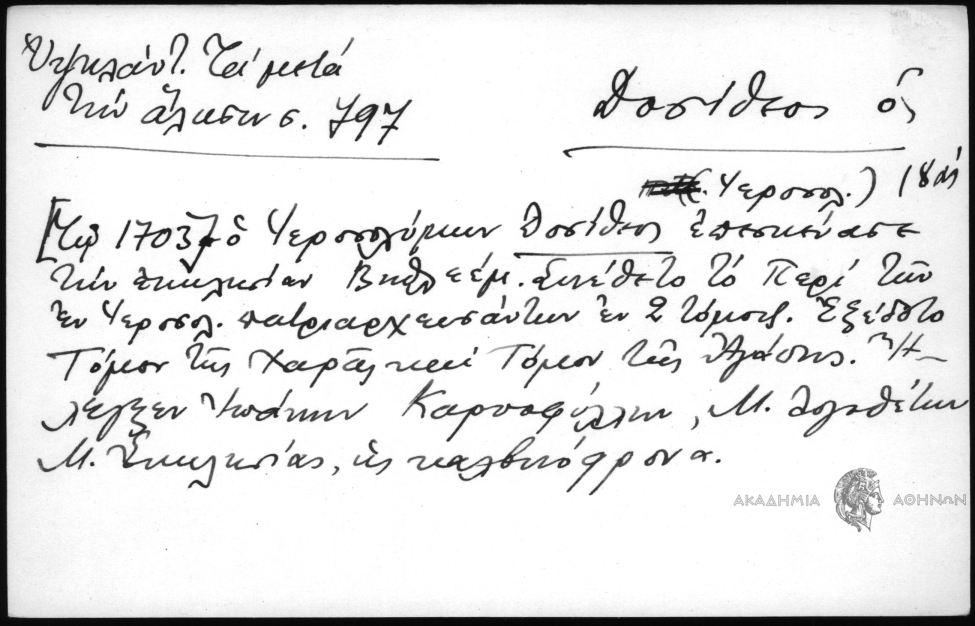 Ὑψηλάντ. Τά μετά
τήν ἅλωσιν σ. 797
Δοσίθεος ὁ
Ἱεροσολ.) 18ος
[Τῷ 1703 ὁ Ἱεροσολύμων Δοσίθεος ἐπεσκεύασε
τήν ἐκκλησίαν Βηθλεέμ. Συνέθετο τό Περί τῶν
ἐν Ἱεροσολ. πατριαρχευσάντων ἐν 2 τόμοις. Ἐξέδοτο
Τόμον τῆς Χαρᾶς καί Τόμον τῆς Ἀγάπης. Ἤ-
λεγξεν Ἰωάννην Καρυοφύλλην, Μ. Λογοθέτην
Μ. Ἐκκλησίας, ὡς καλβινόφρονα.
ΑΚΑΔΗΜΙΑ ΑΘΗΝΩΝ